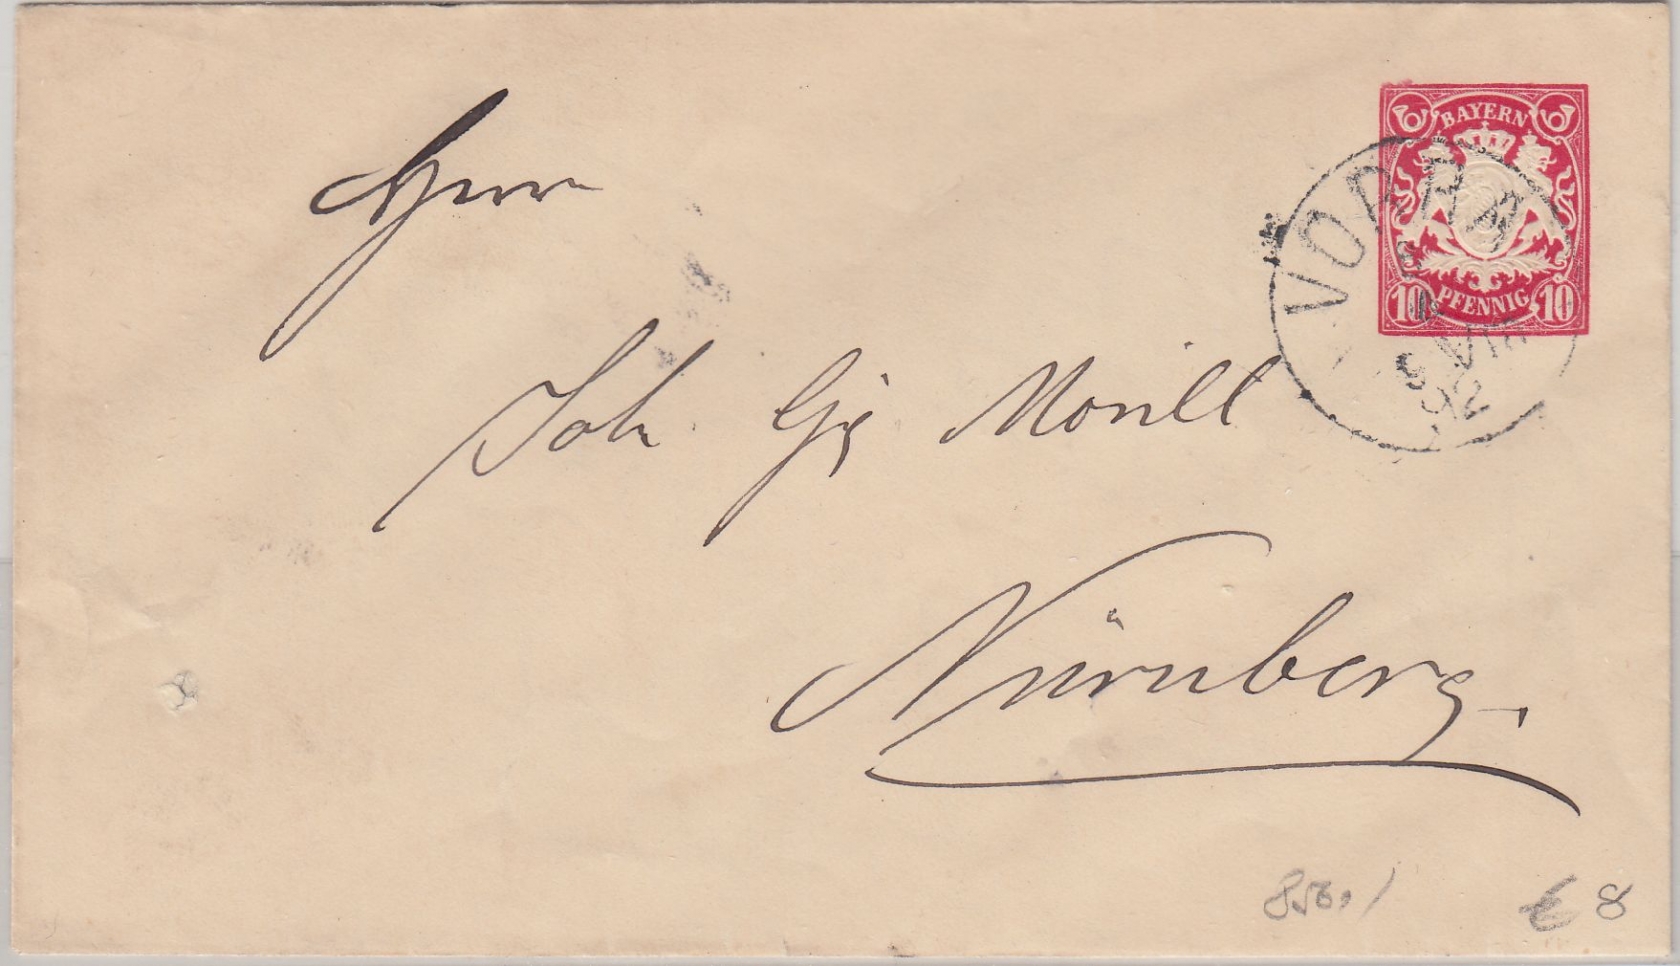 BAYERN
10 PFENNIG 10
VORRA
VIII
92
Herrn
Joh. Gg Morill
Nürnberg.
€ 8